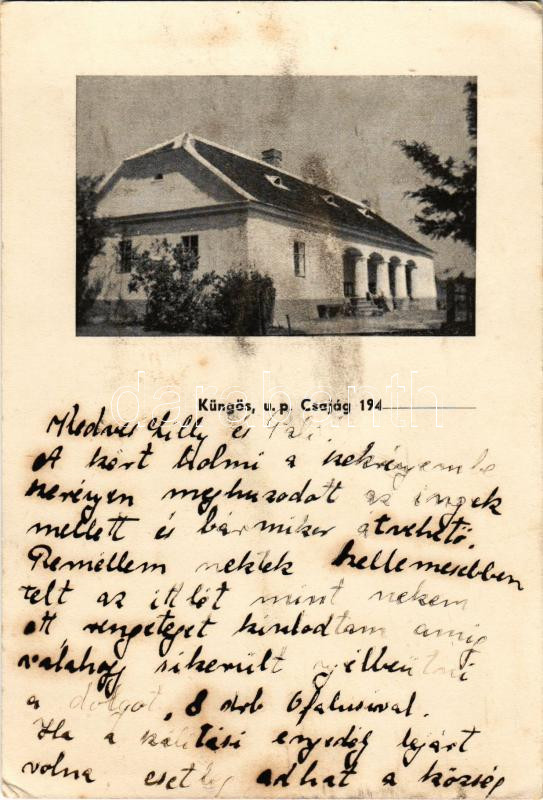 Küngös, u. p. Csajág 194
Kedves Lilly és
A kért holmi a szekrényembe
szerényen meghuzodott az ingek
mellett és bármikor átvehető.
Remélem nektek kellemesebben
telt az ittlét mint nekem
ott rengeteget kinlodtam amig
valahogy sikerült nyélbeütni
a dolgot, 8 drb
Ha a szállitási engedély lejárt
volna esetleg adhat a község